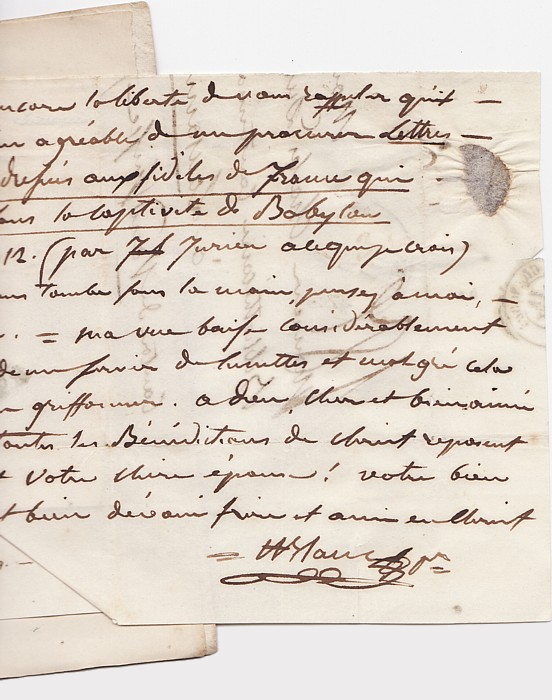 encore la liberté de vous rappeler qu'il —
agréable de me procurer Lettres —
adressées aux fidèles de France qui
dans la captivité de Babylon
12. (par Jurieu à ce que je crois)
tombe sous la main, pensez à moi, —
= ma vue baisse considérablement
de me servir de lunettes et malgré cela
griffonner. a dieu, cher et bien aimé
toutes les Bénédictions de Christ reposent
et votre chère épouse! votre bien
et bien dévoué frère et ami en Christ